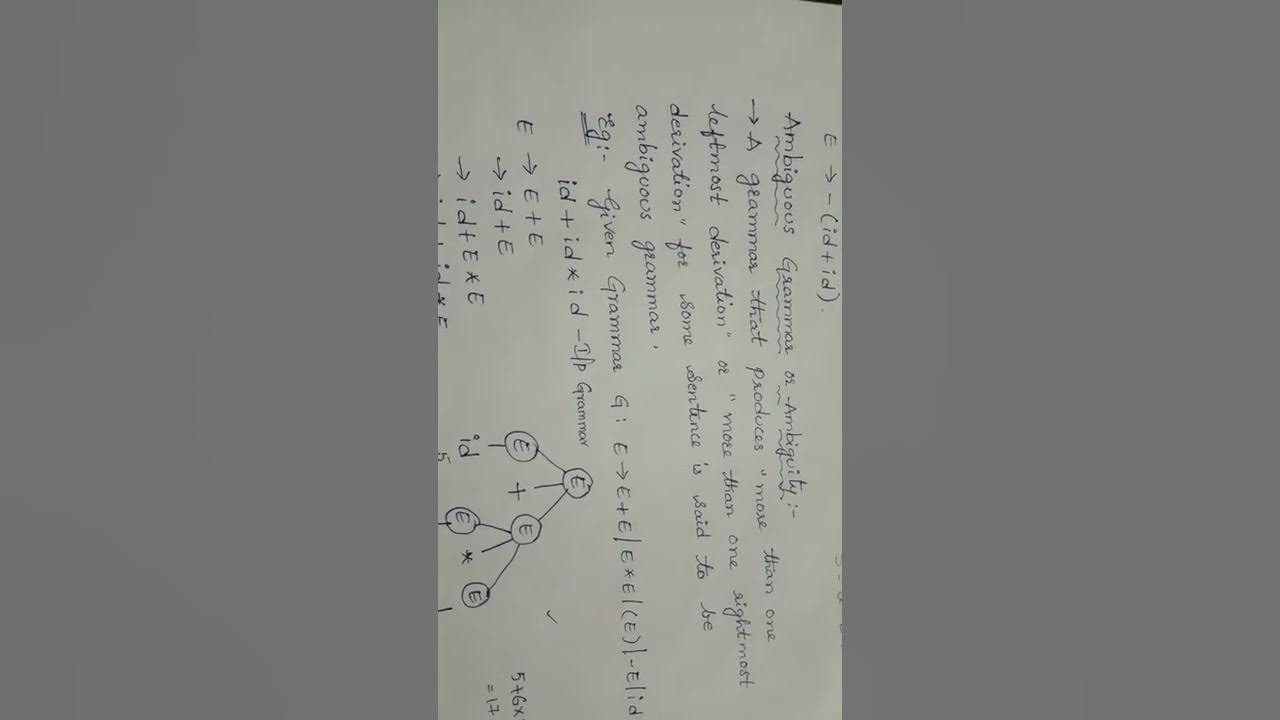 E → - (id + id).
Ambiguous Grammar or Ambiguity :-
→ A grammar that produces "more than one
leftmost derivation" or "more than one rightmost
derivation" for some sentence is said to be
ambiguous grammar.
Eg:- Given Grammar G : E → E + E | E * E | (E) | - E | id
id + id * id - I/p Grammar
E → E + E
→ id + E
→ id + E * E
E
E + E
id E * E
5
5+6x
= 17